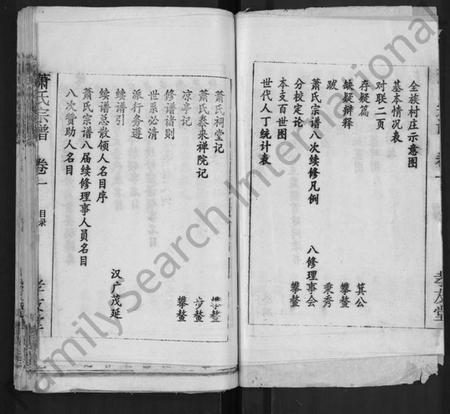 全族村庄示意图
基本情况表
对联二页
存疑篇 箕公
续疑辨释 攀鳌
跋 秉秀
萧氏宗谱八次续修凡例 八修理事会
分校定论 攀鳌
本支百世图
世代人丁统计表
孝友堂
萧氏祠堂记 攀鳌
萧氏泰来禅院记 步鳌
凉亭记 攀鳌
修谱诸则
世系必清
派行务遵
续谱引 汉广茂延
续谱总散领人名目序
萧氏宗谱八届续修理事人员名目
八次赞助人名目
萧氏宗谱 卷一 目录
FamilySearch International